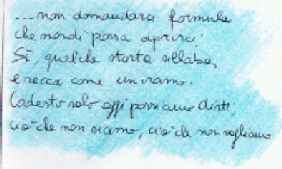 ...non domandarci formule
che mondi possa aprirti
Sì, qualche storta sillaba,
e secca come un ramo.
Codesto solo oggi possiamo dirti,
ciò che non siamo, ciò che non vogliamo